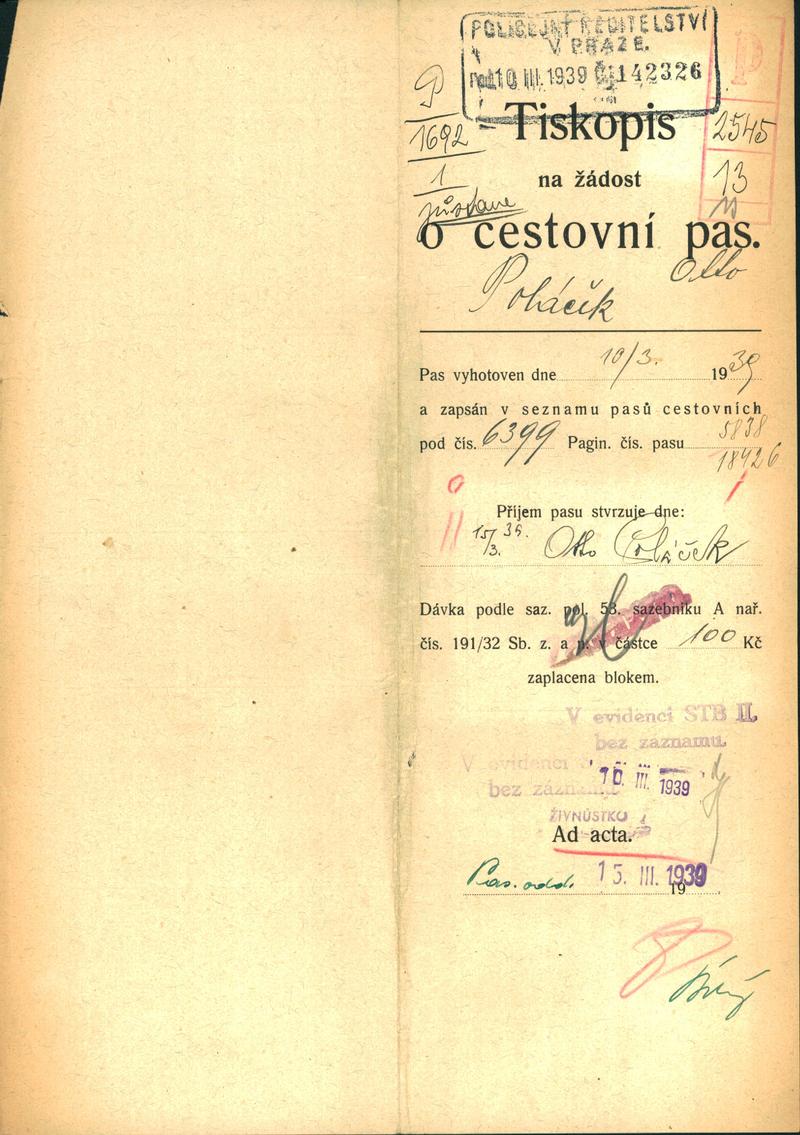 POLICEJNÍ ŘEDITELSTVÍ
V PRAZE.
10 III. 1939 Čj. 142326
P
P
1692
1
Tiskopis
2545
13
na žádost
zůstane
o cestovní pas.
Otto
Poláček
Pas vyhotoven dne 10/3. 1939
a zapsán v seznamu pasů cestovních
pod čís. 6399 Pagin. čís. pasu 5838
18426
Příjem pasu stvrzuje dne:
15/3. 39. Otto Poláček
Dávka podle saz. pol. 53. sazebníku A nař.
čís. 191/32 Sb. z. a n. v částce 100 Kč
zaplacena blokem.
V evidenci STB II.
bez záznamu.
V evidenci
bez záznamu
10. III. 1939
ŽIVNŮSTKO
Ad acta.
Pas. odd. 15. III. 1939
19